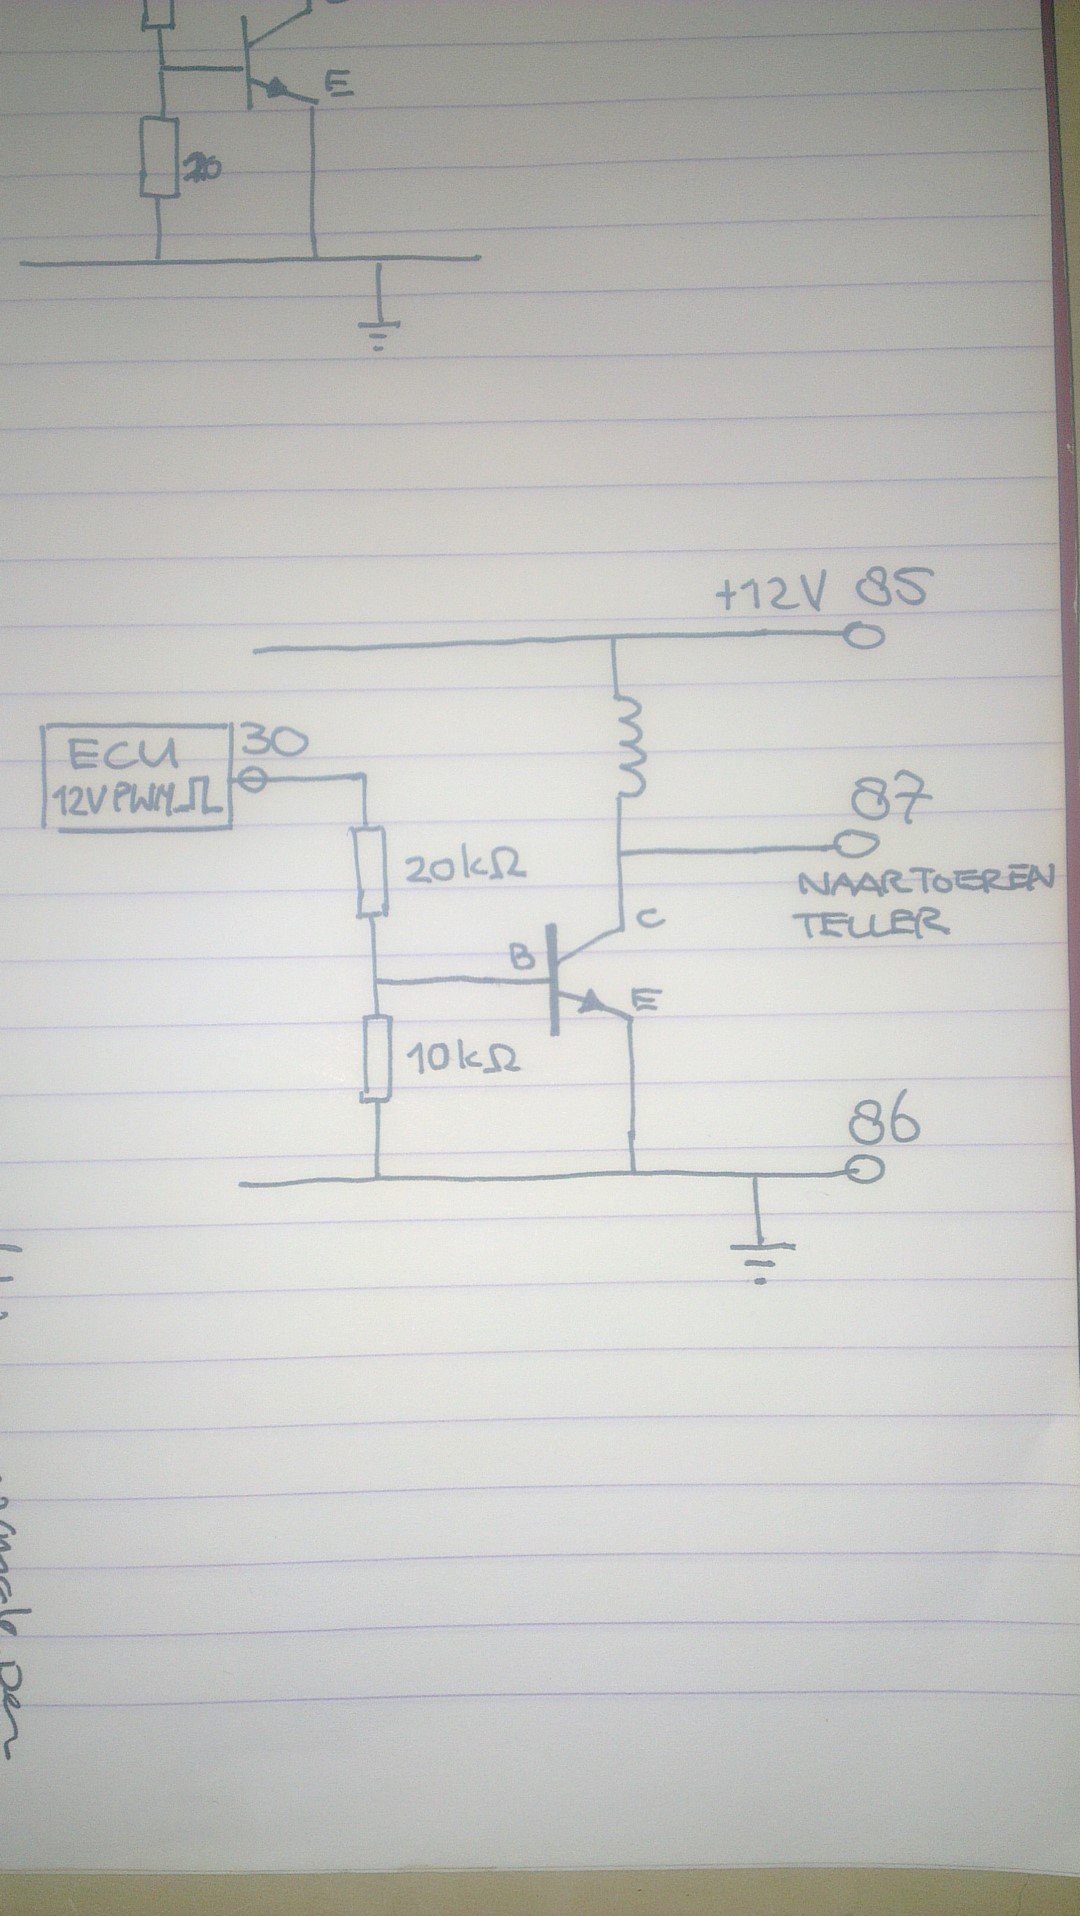 E
+12V 85
ECU
30
12V PWM
87
20kΩ
NAAR TOEREN
TELLER
C
B
E
10kΩ
86